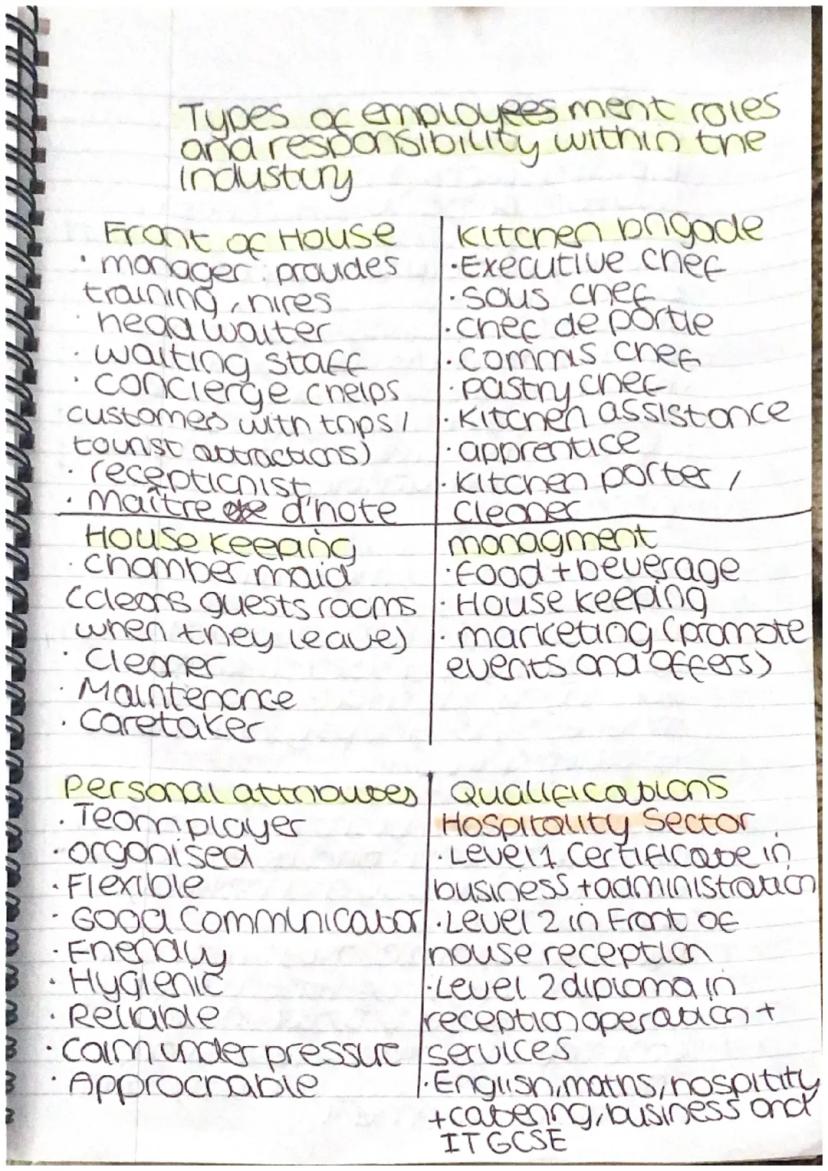 Types of employees ment roles
and responsibility within the
industury
Front of House
· manager: provides
training, hires
· head waiter
· waiting staff
· concierge (helps
customers with trips /
tourist attractions)
· receptionist
· Maître de d'hote
Kitchen brigade
· Executive chef
· sous chef
· chef de portie
· commis chef
· pastry chef
· Kitchen assistance
· apprentice
· Kitchen porter /
cleaner
House keeping
· Chamber maid
(cleans guests rooms
when they leave)
· Cleaner
· Maintenance
· Caretaker
managment
· Food + beverage
· House keeping
· marketing (promote
events and offers)
Personal attributes
· Team player
· organised
· Flexible
· Good Communicator
· Friendly
· Hygienic
· Reliable
· calm under pressure
· Approchable
Qualifications
Hospitality Sector
· Level 1 Certificate in
business + administration
· Level 2 in Front of
house reception
· Level 2 diploma in
reception operation +
services
· English, maths, hospitity
+ catering, business and
IT GCSE